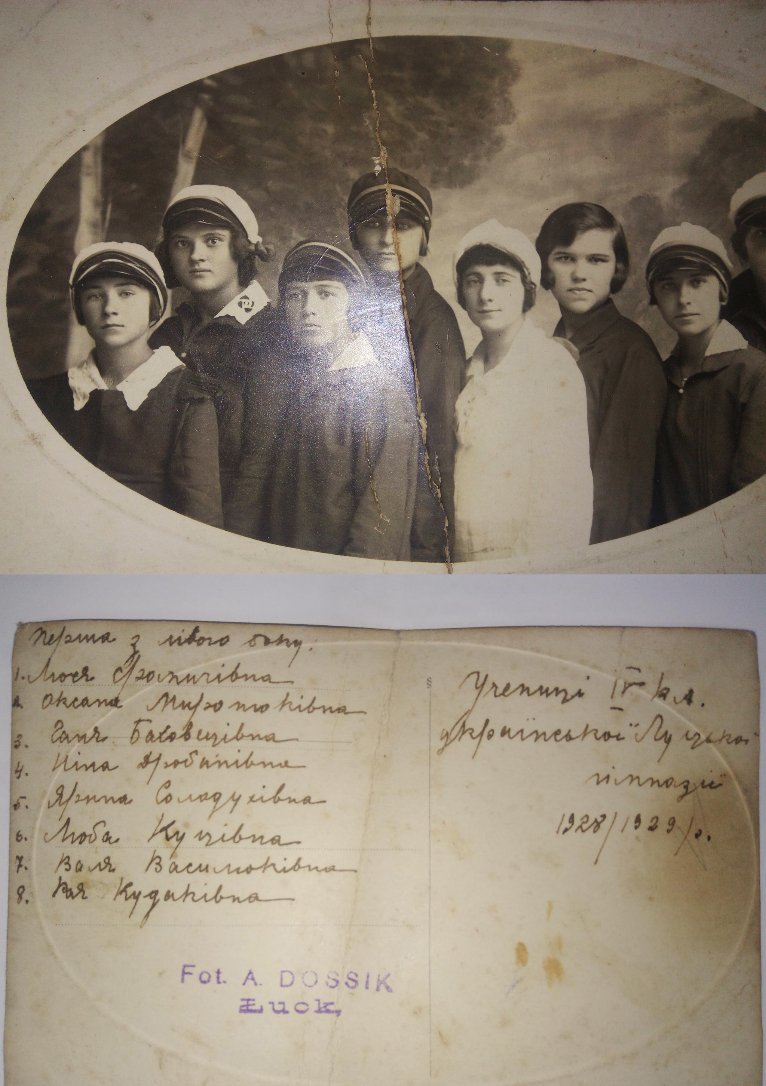 Перша з лівого боку:
1. Люся
2. Оксана Миротюківна
3. Галя
4. Ніна Дробанівна
5. Ярина Солодухівна
6. Люба Куцівна
7. Валя Василюківна
8. Кудаківна
Учениці IV кл.
української Луцької
гімназії
1928/1929 р.
Fot. A. DOSSIK
Łuck,